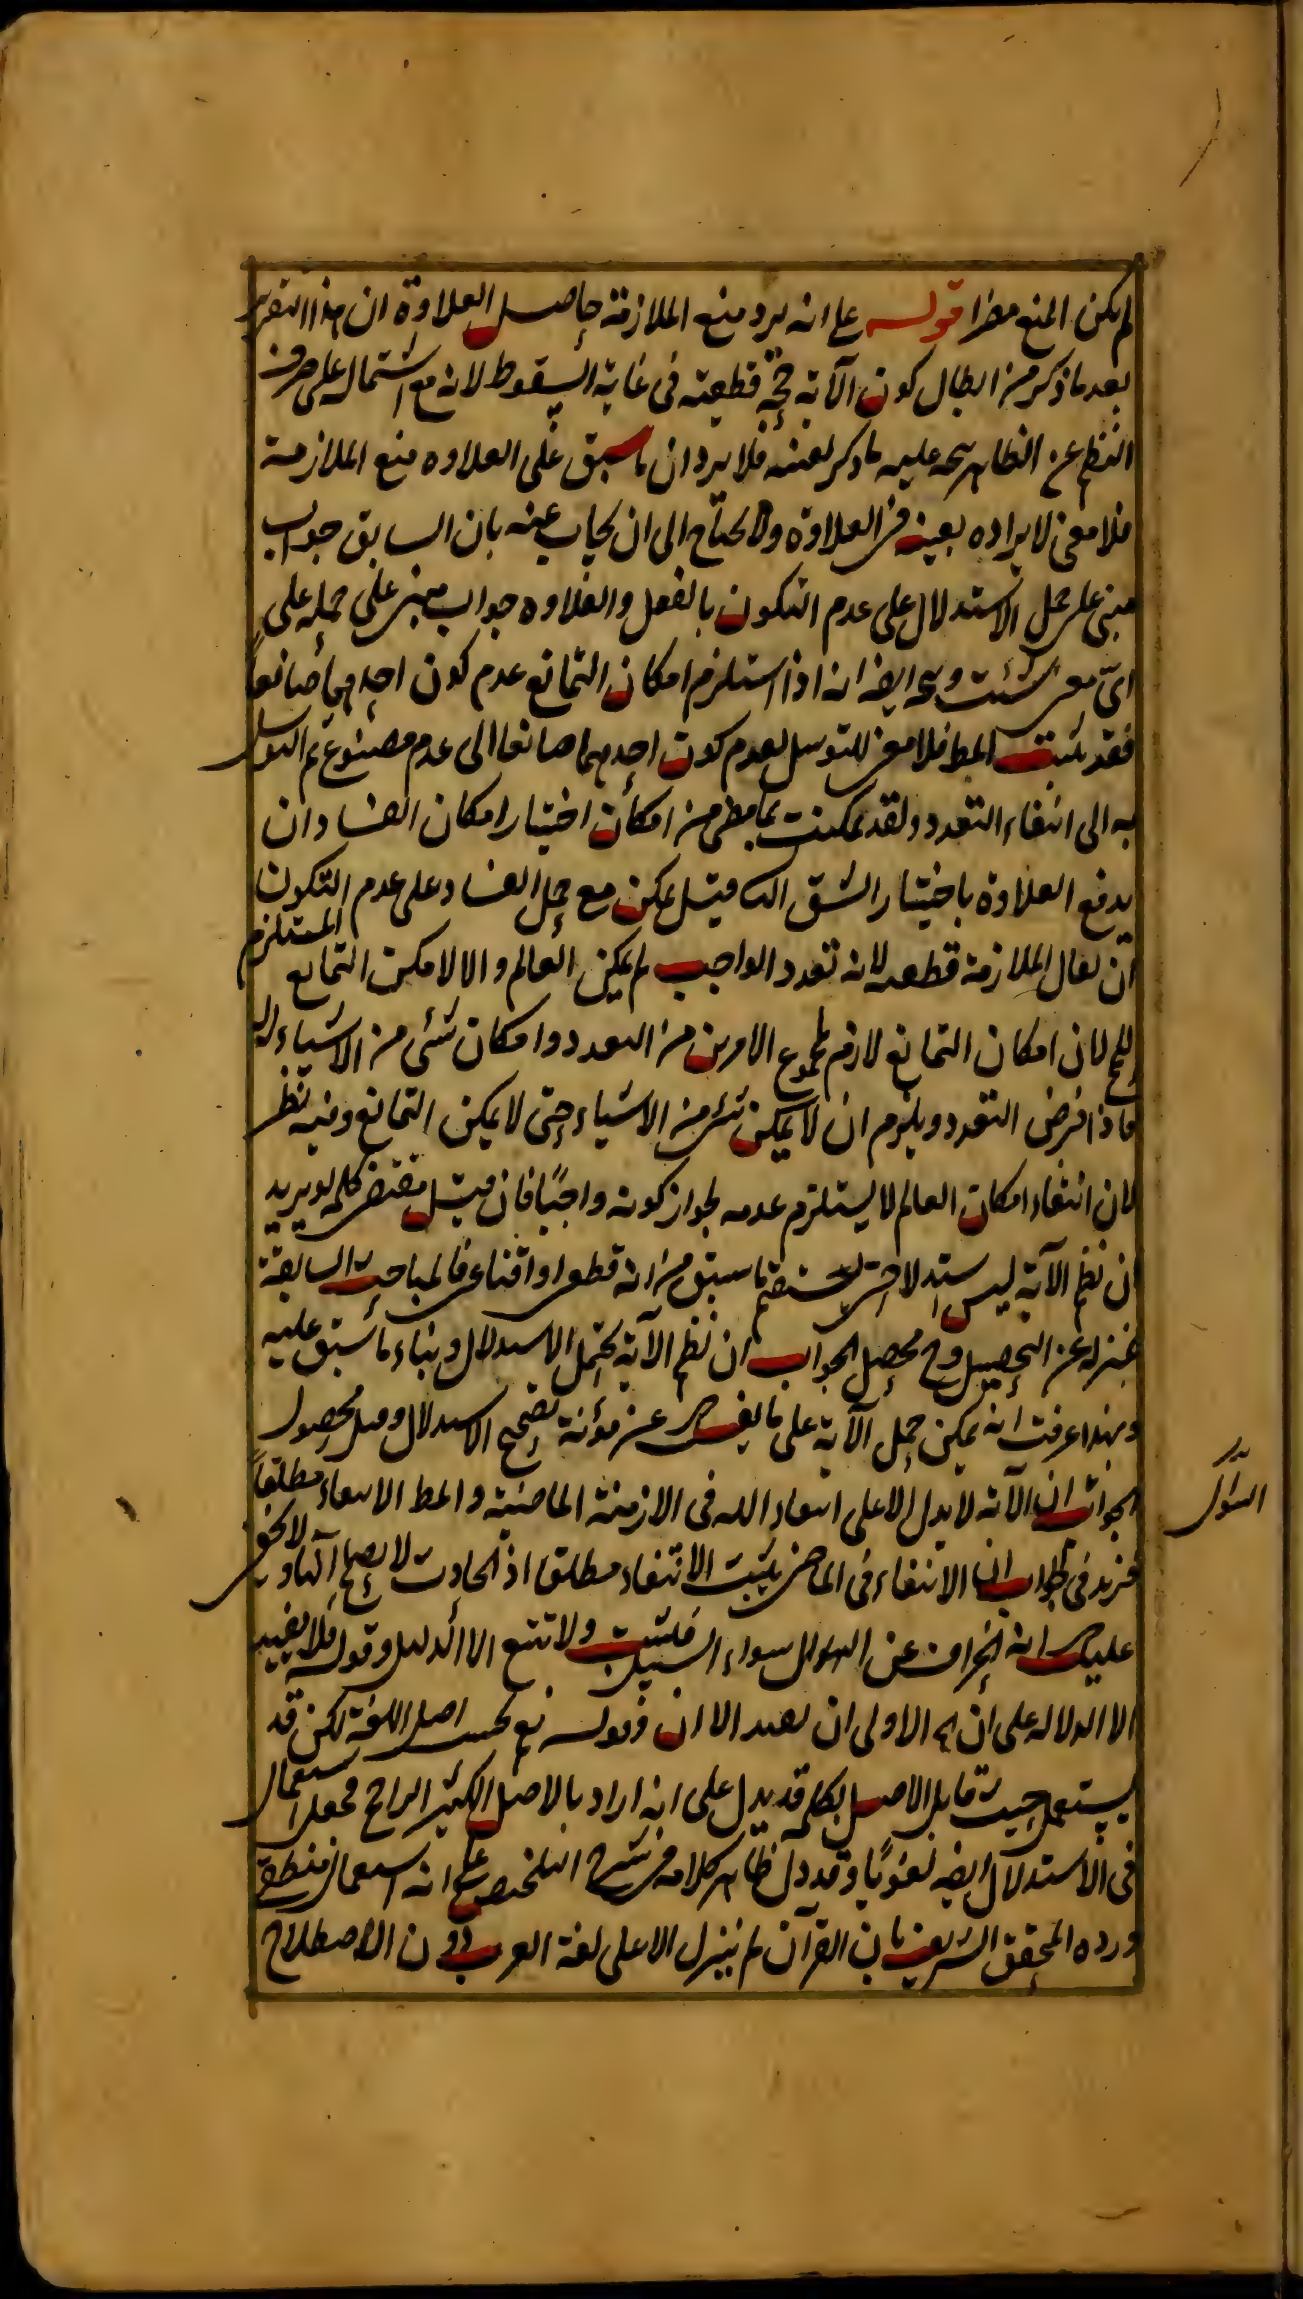 لم يكن المنع مضرا قوله على انه يرد منع الملازمة حاصل العلاوة ان هذا التقرير
بعد ما ذكر من ابطال كون الآية حجة قطعية فى غاية السقوط لانه مع اشتماله على صرف
النظم عن الظاهر يتجه عليه ما ذكر بعينه فلا يرد ان ما سبق على العلاوه منع الملازمة
فلا معنى لا يراده بعينه فى العلاوة ولا يحتاج الى ان يجاب عينه بان السابق جواب
مبنى على حمل الاستدلال على عدم التكون بالفعل والعلاوه جواب مبنى على حمله على
اى معنى شئت ويتجه ايضا انه اذا استلزم امكان التمانع عدم كون احدهما صانعا
فقد ثبت المط فلا معنى للتوسل بعدم كون احدهما صانعا الى عدم مصنوع ثم التوسل
به الى انتفاء التعدد ولقد تمكنت بما مضى من امكان اختيار امكان الفساد ان
يدفع العلاوة باختيار الشق قيل يمكن مع حمل الفساد على عدم التكون
ان يقال الملازمة قطعيه لانه تعدد الواجب لم يمكن العالم والا لامكن التمانع المستلزم
للمح لان امكان التمانع لازم لمجموع الامرين من التعدد وامكان شئ من الاشياء
فاذا فرض التعدد ويلزم ان لا يمكن شئ من الاشياء حتى لا يمكن التمانع وفيه نظر
لان انتفاء امكان العالم لا يستلزم عدمه لجواز كونه واجبا فان قيل مقتضى كلمه لو يريد
ان نظم الآية ليس استدلالا حتى يستقيم ما سبق من انه قطعى او اقناعى فالمباحث السابقة
بمنزله عن التحصيل وح محصل الجواب ان نظم الآية يحتمل الاستدلال وبناء ما سبق عليه
وبهذا عرفت انه يمكن حمل الآية على ما يفى عن مؤنة تصحيح الاستدلال وقيل محصول
السؤال
الجواب ان الآية لا يدل الا على انتفاء الله فى الازمنة الماضية والمط الانتفاء مطلقا
فزيد فى الجواب ان الانتفاء فى الماضى يثبت الانتفاء مطلقا اذ الحادث لا يصلح آلها ولا يخفى
عليك انه انحراف عن السؤال سواء السبيل فلتثبت ولا تتبع الا الدليل وقوله فلا يفيد
الا الدلاله على ان اه الاولى ان يفيد الا ان وقوله نعم بحسب اصل اللغة لكن قد
يستعمل حيث قابل الاصل بكلمه قد يدل على انه اراد بالاصل الكثير الراجح فجعل استعمال
فى الاستدلال ايضا لغويا وقد دل ظاهر كلامه فى شرح التلخيص على انه استعمال منطقى
ورده المحقق الشريف بان القرآن لم ينزل الا على لغة العرب دون الاصطلاح